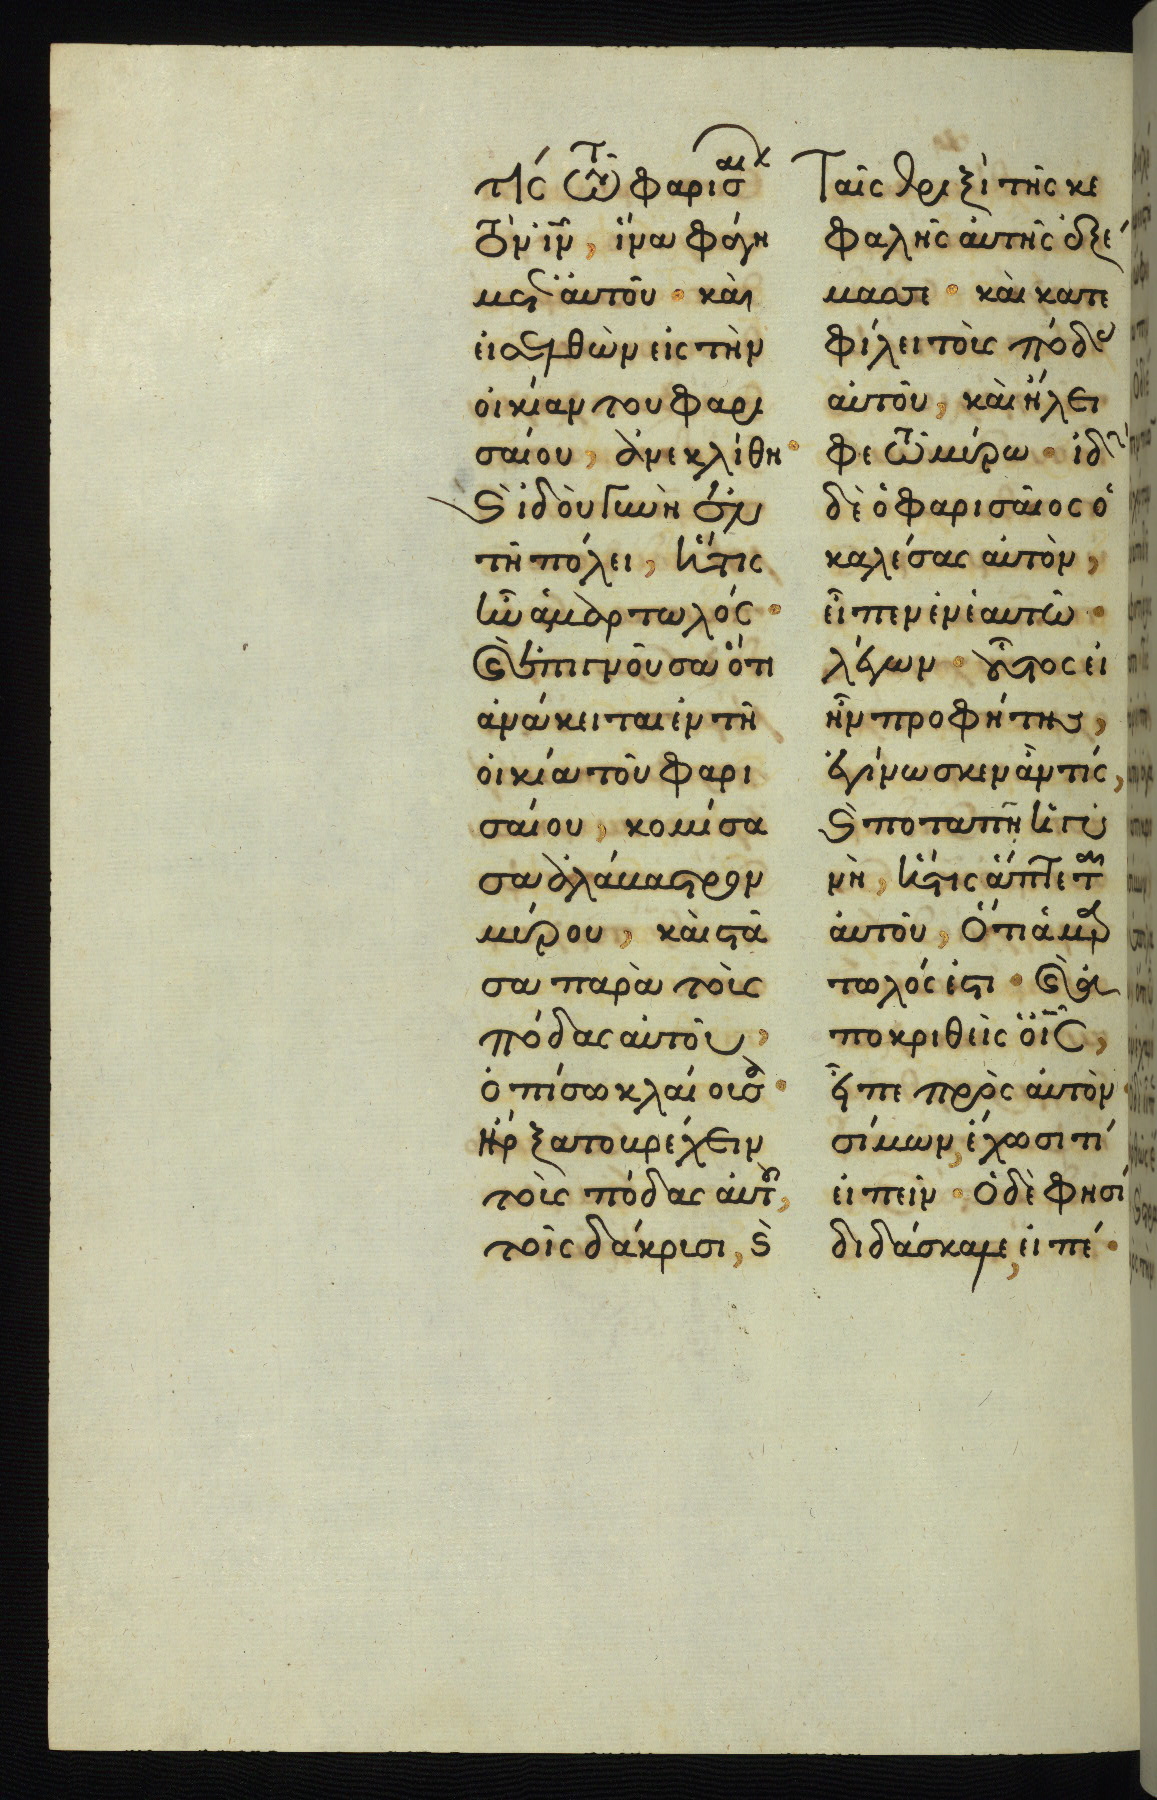 τίς τῶν φαρισαί
ὸν ἰν, ἵνα φάγη
μετ' αὐτοῦ · καὶ
εἰσελθὼν εἰς τὴν
οἰκίαν του φαρι
σαίου, ἀνεκλίθη ·
ϗ ἰδοὺ γυνὴ ἐν
τῆ πόλει, ἥτις
ἦν ἁμαρτωλός ·
ϗ ἐπιγνοῦσα ὅτι
ἀνάκειται ἐν τῆ
οἰκία τοῦ φαρι
σαίου, κομίσα
σα ἀλάβαστρον
μύρου, καὶ στᾶ
σα παρὰ τοὺς
πόδας αὐτοῦ,
ὀπίσω κλαίουσ ·
ἤρξατο βρέχειν
τοὺς πόδας αὐτ,
τοῖς δάκρυσι, ϗ
Ταῖς θριξὶ τῆς κε
φαλῆς αὐτῆς ἐξέ
μασσε · καὶ κατε
φίλει τοὺς πόδας
αὐτοῦ, καὶ ἤλει
φε τῶ μύρω · ἰδὼν
δὲ ὁ φαρισαῖος ὁ
καλέσας αὐτὸν,
εἶπεν ἐν ἑαυτῶ ·
λέγων · οὗτος εἰ
ἦν προφήτης,
ἐγίνωσκεν ἂν τίς,
ϗ ποταπὴ ἡ γυ
νὴ, ἥτις ἅπτετ
αὐτοῦ, ὅτι ἁμαρ
τωλός ἐστι · ϗ ἀ
ποκριθεὶς ὁ ῙϹ,
εἶπε πρὸς αὐτὸν ·
σίμων, ἔχω σι τί
εἰπεῖν · ὁ δὲ φησί
διδάσκαλε, εἰπέ ·